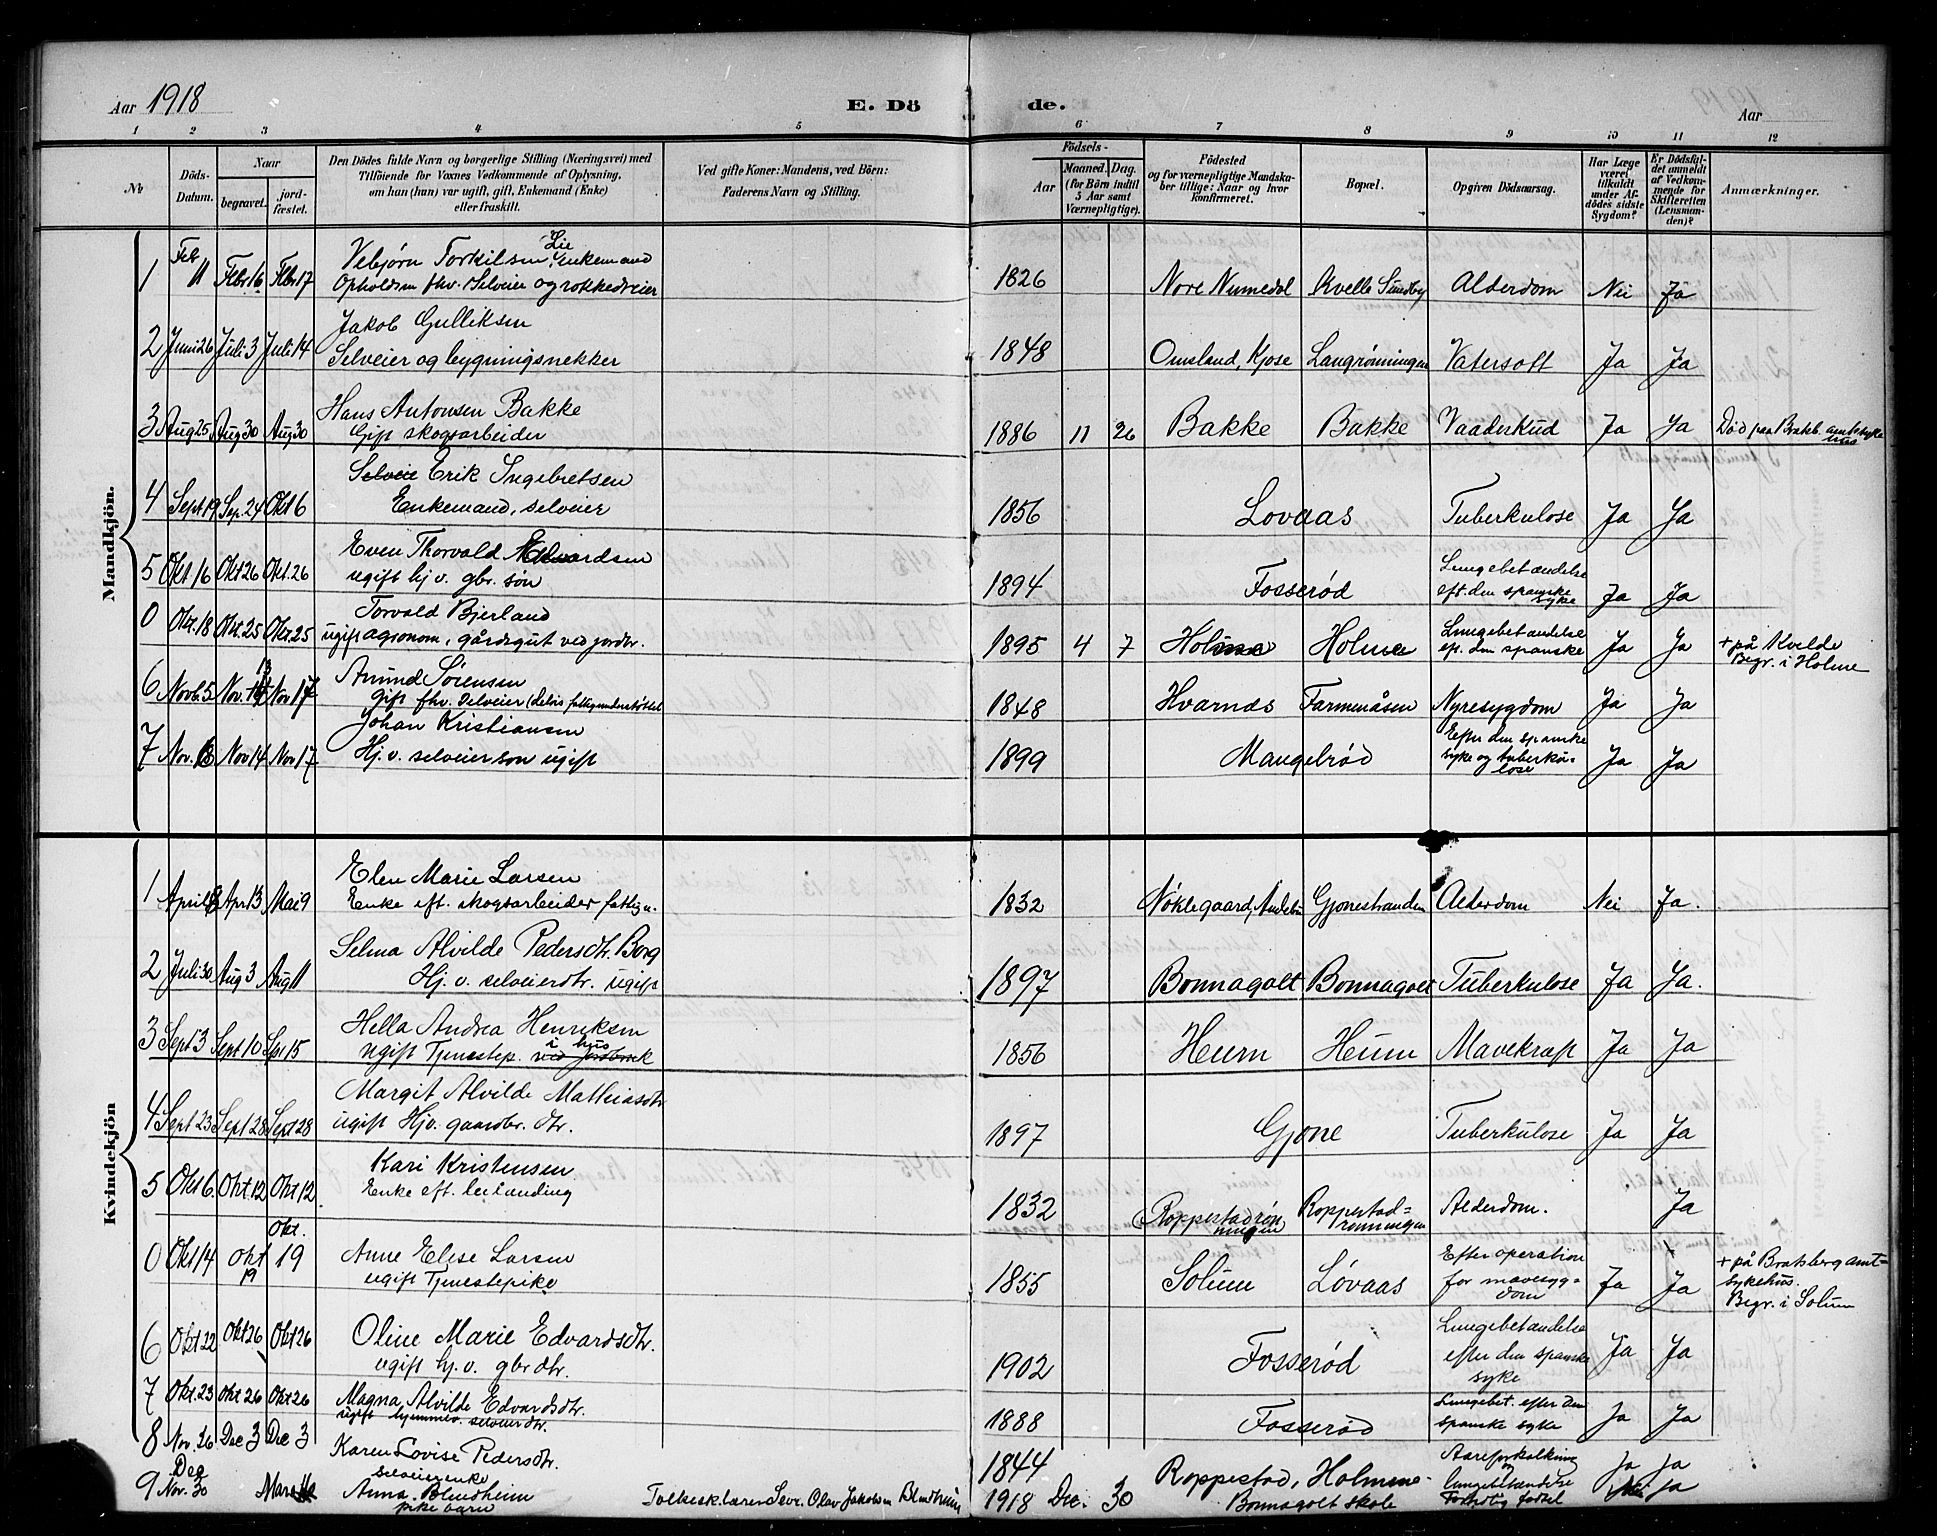 Aar 1918
E. Dö
de.
Aar
1 2 3 4 5 6 7 8 9 10 11 12
No
Döds-Datum.
Naar
begravet.
jord-fæstet.
Den Dödes fulde Navn og borgerlige Stilling (Næringsvei) med
Tilföiende for Voxnes Vedkommende af Oplysning,
om han (hun) var ugift, gift, Enkemand (Enke)
eller fraskilt.
Ved gifte Koner: Mandens, ved Börn:
Faderens Navn og Stilling.
Födsels-
Aar
Maaned. Dag.
(for Börn indtil
5 Aar samt
Værnepligtige).
Födested
og for værnepligtige Mandska-
ber tillige: Naar og hvor
konfirmeret.
Bopæl.
Opgiven Dödsaarsag.
Har Læge
været
tilkaldt
under Af-
dödes sidste
Sygdom?
Er Dödsfal-
det anmeldt
af Vedkom-
mende for
Skifteretten
(Lensman-
den)?
Anmærkninger.
Mandkjön.
1 Feb 11 Febr 16 Febr 17 Vebjørn Torkilsen Lie Enkemand
Opholdsm fhv. Selveier og rokkedreier 1826 Nore Numedal Kvelle Sundby Alderdom Nei Ja
2 Juni 26 Juli 3 Juli 14 Jakob Gulliksen
Selveier og bygningsnekker 1848 Omsland, Kjose Langrønningen Vatersott Ja Ja
3 Aug 25 Aug 30 Aug 30 Hans Antonsen Bakke
Gift skogsarbeider 1886 11 26 Bakke Bakke Vaadeskud Ja Ja Død paa Bratsb. amtssyke
hus
4 Sept 19 Sep. 24 Okt 6 Selveie Erik Ingebretsen
Enkemand, selveier 1856 Lovaas Tuberkulose Ja Ja
5 Okt 16 Okt 26 Okt. 26 Even Thorvald Edvardsen
ugift hj. v. gbr. søn 1894 Fosserød Lungebetændelse
eft. den spanske
syke Ja Ja
0 Okt. 18 Okt. 25 Okt. 25 Torvald Bjerland
ugift agronom, gårdsgut ved jordbr. 1895 4 7 Holme Holme Lungebetændelse
eft. den spanske Ja Ja + på Kvelde
Begr. i Holme
6 Novb. 5 Nov. 13 Nov 17 Amund Sørensen
gift fhv. Selveier (delvis fattigunderstøttet 1848 Hvarnds Farmenåsen Nyresygdom Ja Ja
7 Nov. 8 Nov 14 Nov 17 Johan Kristiansen
Hj. v. selveier søn ugift 1899 Mangelrød Efter den spanske
syke og tuberku-
lose Ja Ja
Kvindekjön
1 April 8 Apr 13 Mai 9 Elen Marie Larsen
Enke eft. skogsarbeider fattigu. 1832 Nøklegaard, Andebu Gjonestranden Alderdom Nei Ja.
2 Juli 30 Aug 3 Aug 11 Selma Alvilde Pedersdtr. Borg
Hj. v. selveierdtr. ugift 1897 Bonnagolt Bonnagolt Tuberkulose Ja Ja.
3 Sept 3 Sept 10 Spt 15 Hella Andrea Henriksen
ugift Tjenestep. i hus ved Jordbruk 1856 Heum Heum Mavekræft Ja Ja
4 Sept 23 Sept 28 Sept 28 Margit Alvilde Mathiasdtr
ugift Hjv. gaardbr. dtr. 1897 Gjone Tuberkulose Ja Ja
5 Okt 6. Okt 12 Okt 12 Kari Kristensen
Enke eft. leilænding 1832 Roppestadrøn
ningen Roppestad=
rønningen Alderdom. Ja
0 Okt 14 Okt 19 Okt. 19 Anne Elise Larsen
ugift Tjenestepike 1855 Solum Løvaas Efter operation
for mavesyg=
dom Ja Ja + på Bratsberg amt-
sykehus.
Begr. i Solum
6 Okt 22 Okt 26 Okt 26 Oline Marie Edvardsdtr.
ugift hj. v. gbr dtr. 1902 Fosserød Lungebetændelse
efter den spanske
syke Ja Ja
7 Okt. 23 Okt 26 Okt 26 Magna Alvilde Edvardsdtr.
ugift hjemmev. selveier dtr. 1888 Fosserød Lungebet. efter den
spanske syke Ja Ja
8 Nov. 26 Dec 3 Dec 3 Karen Lovise Pedersdtr.
selveierenke 1844 Roppestad, Holmene Aareforkalkning
og
lungebetændelse Ja Ja
9 Dec Nov. 30 Anna Blindheim
pike barn Folkesk.lærer Sevr. Olav Jakobsen Blindheim 1918 Dec. 30 Bonnagolt skole
Fortidlig fødsel Nei Ja